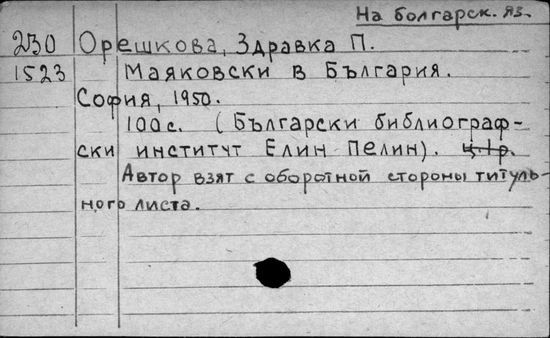 На болгарск. яз.
230 Орешкова, Здравка П.
1523 Маяковски в България.
София, 1950.
100с. (Български библиограф-
ски институт Елин Пелин). ц. 1р.
Автор взят с оборотной стороны титуль-
ного листа.